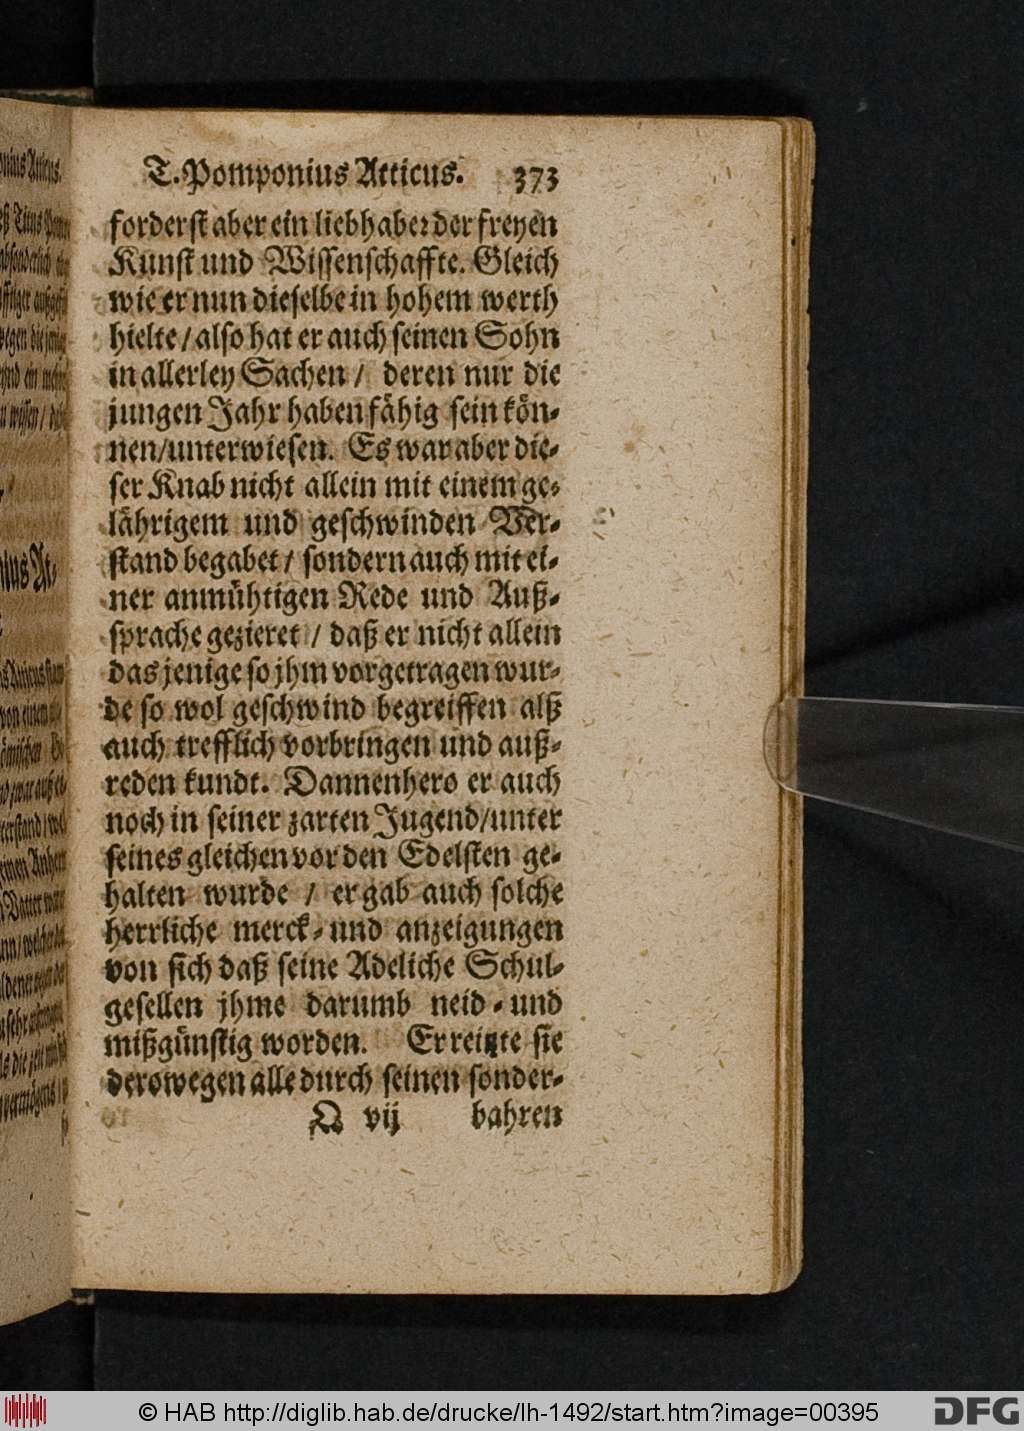 T. Pomponius Atticus. 373
forderst aber ein liebhaber der freyen
Kunst und Wissenschaffte. Gleich
wie er nun dieselbe in hohem werth
hielte / also hat er auch seinen Sohn
in allerley Sachen / deren nur die
jungen Jahr haben fähig sein kön-
nen / unterwiesen. Es war aber die-
ser Knab nicht allein mit einem ge-
lährigem und geschwinden Ver-
stand begabet / sondern auch mit ei-
ner anmühtigen Rede und Auß-
sprache gezieret / daß er nicht allein
das jenige so jhm vorgetragen wur-
de so wol geschwind begreiffen alß
auch trefflich vorbringen und auß-
reden kundt. Dannenhero er auch
noch in seiner zarten Jugend / unter
seines gleichen vor den Edelsten ge-
halten wurde / er gab auch solche
herrliche merck- und anzeigungen
von sich daß seine Adeliche Schul-
gesellen jhme darumb neid- und
mißgünstig worden. Er reitzte sie
derowegen alle durch seinen sonder-
Q vij bahren
© HAB http://diglib.hab.de/drucke/lh-1492/start.htm?image=00395
DFG